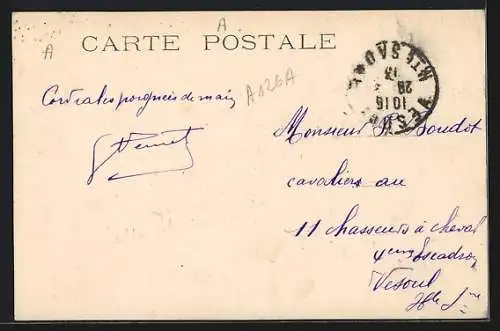 A
A
CARTE POSTALE
A126A
Cordiales poignées de main
VESOUL
1016
28
13
Monsieur Boudot
cavalier au
11 chasseurs à cheval
4eme Escadron
Vesoul
Hte Sne